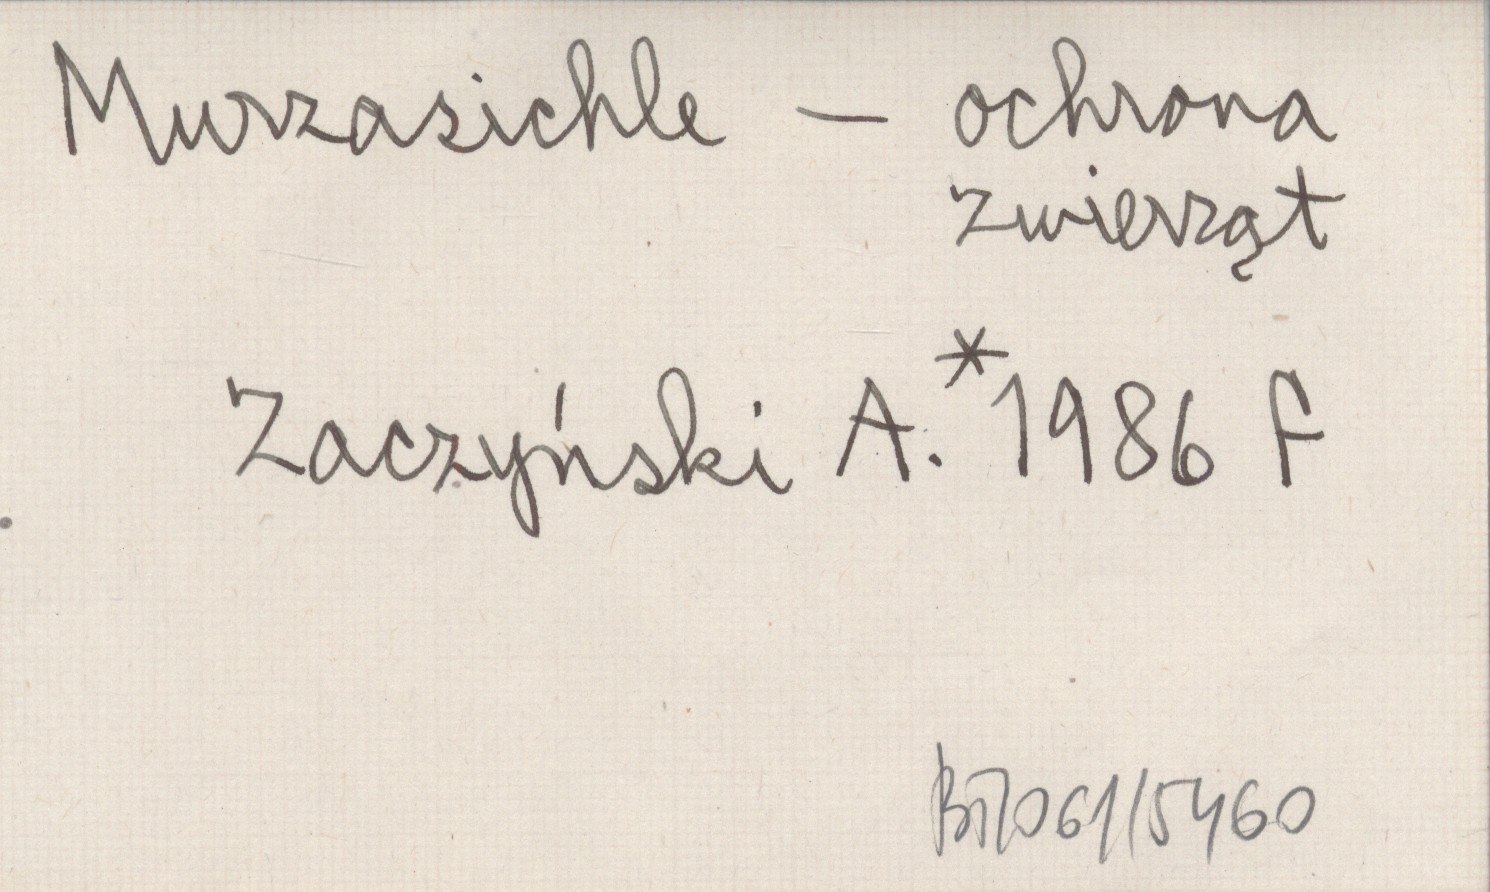 Murzasichle — ochrona
zwierząt
Zaczyński A.* 1986 F
061/5460